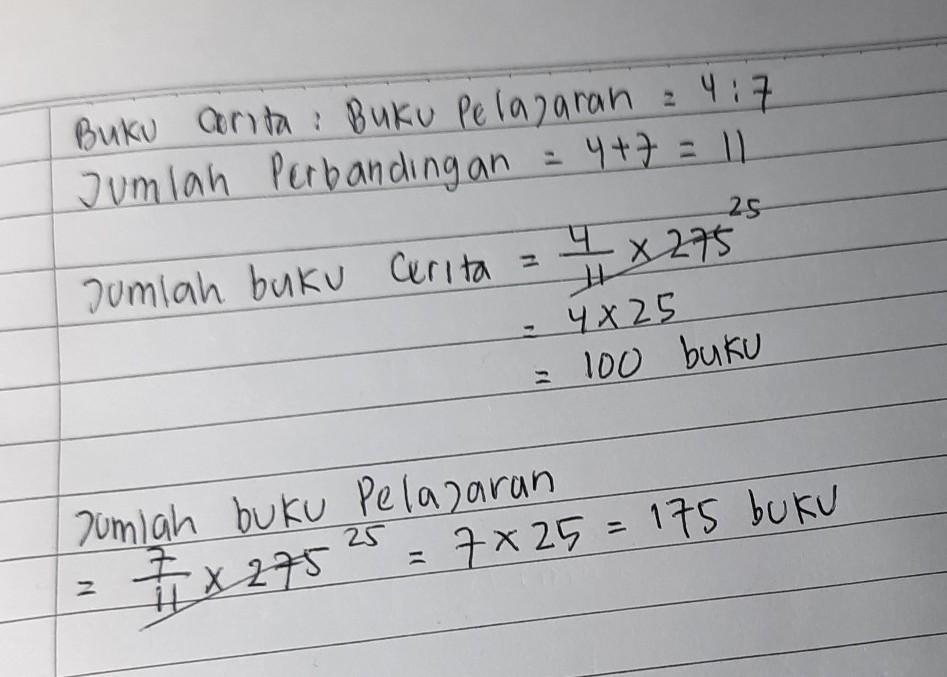 Buku Cerita : Buku Pelajaran = 4 : 7
Jumlah Perbandingan = 4+7 = 11
Jumlah buku Cerita = 4/11 x 275 25
= 4 x 25
= 100 buku
Jumlah buku Pelajaran
= 7/11 x 275 25 = 7 x 25 = 175 buku